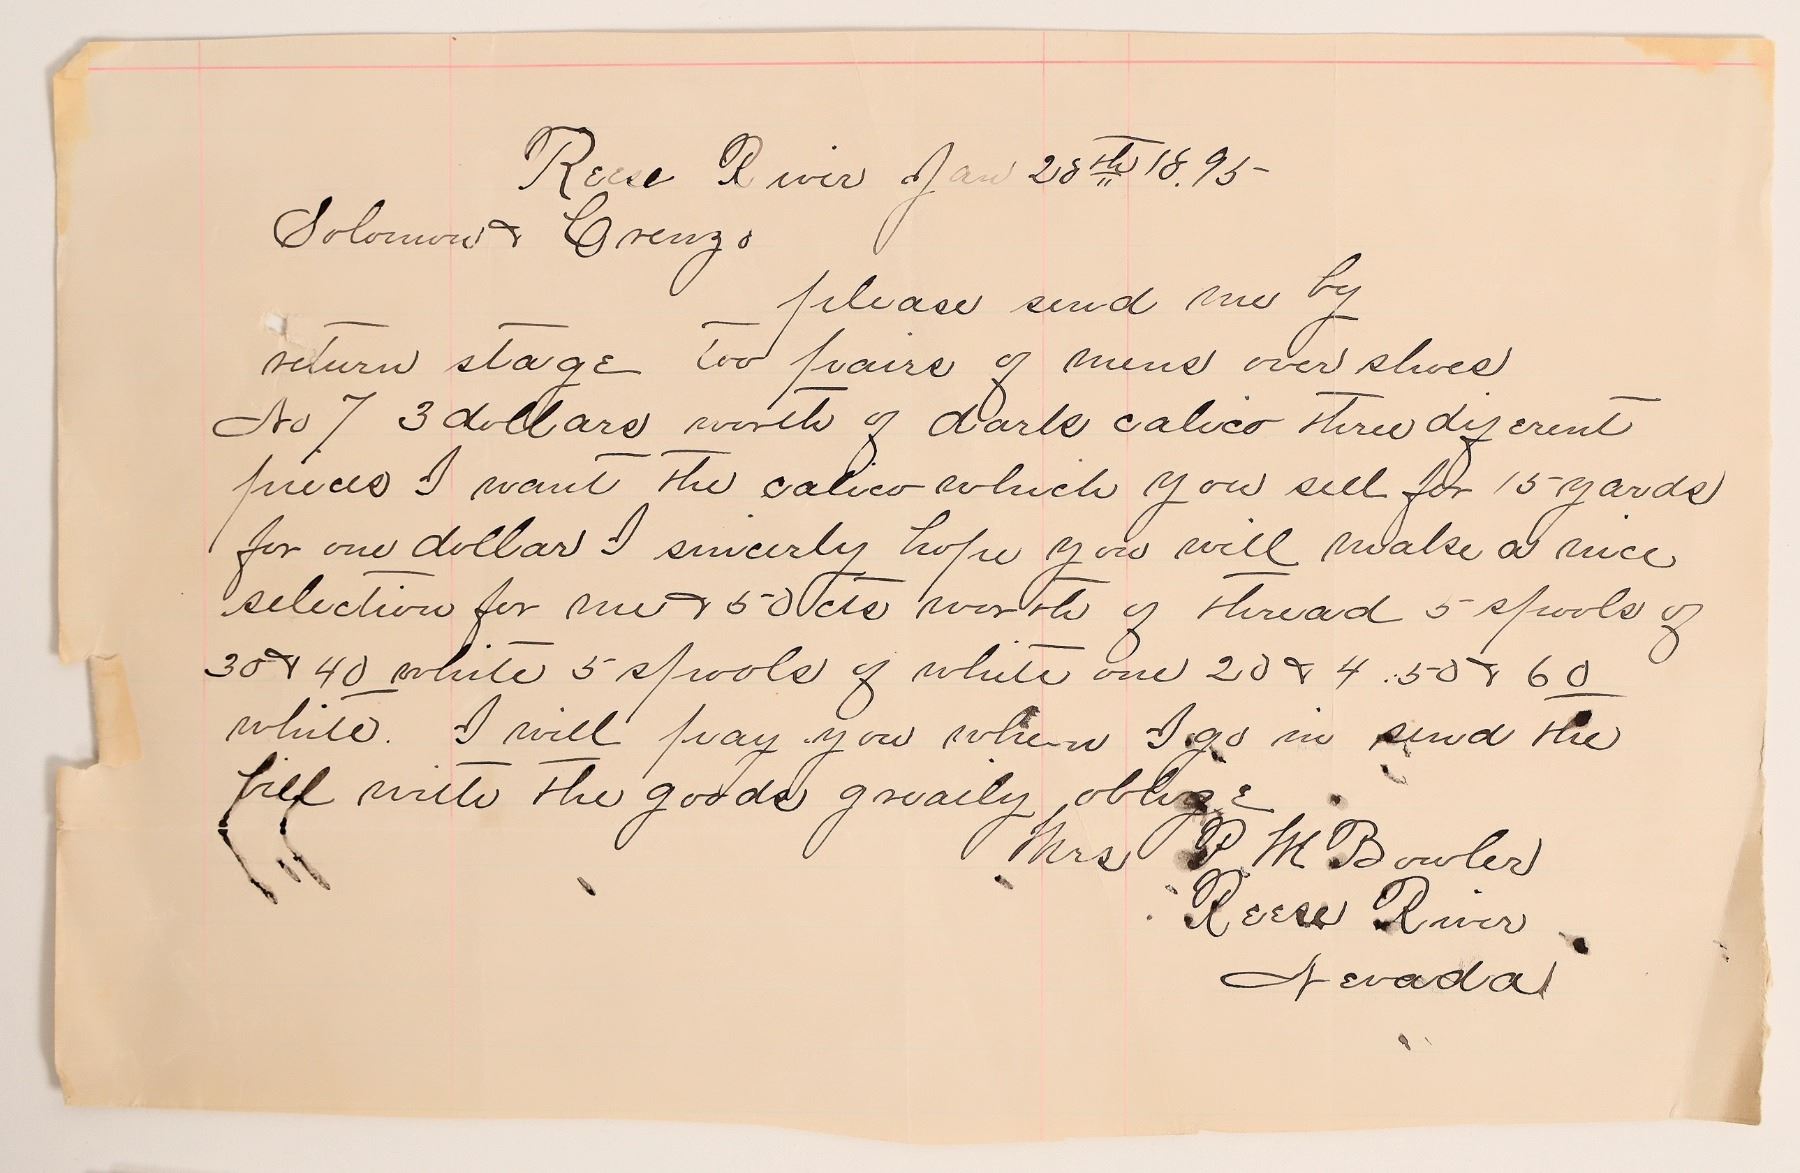 Reese River Jan 28th 18.95
Solomon & Orenzo
please send me by
return stage too pairs of mens over shoes
No 7 3 dollars worth of dark calico three diferent
pieces I want the calico which you sell for 15 yards
for one dollar I sincerly hope you will make a nice
selection for me & 50 cts worth of thread 5 spools of
30 & 40 white 5 spools of white one 20 & 4 .50 & 60
white. I will pay you when I go in send the
bill with the goods greatly oblige
Mrs P M Bowler
Reese River
Nevada